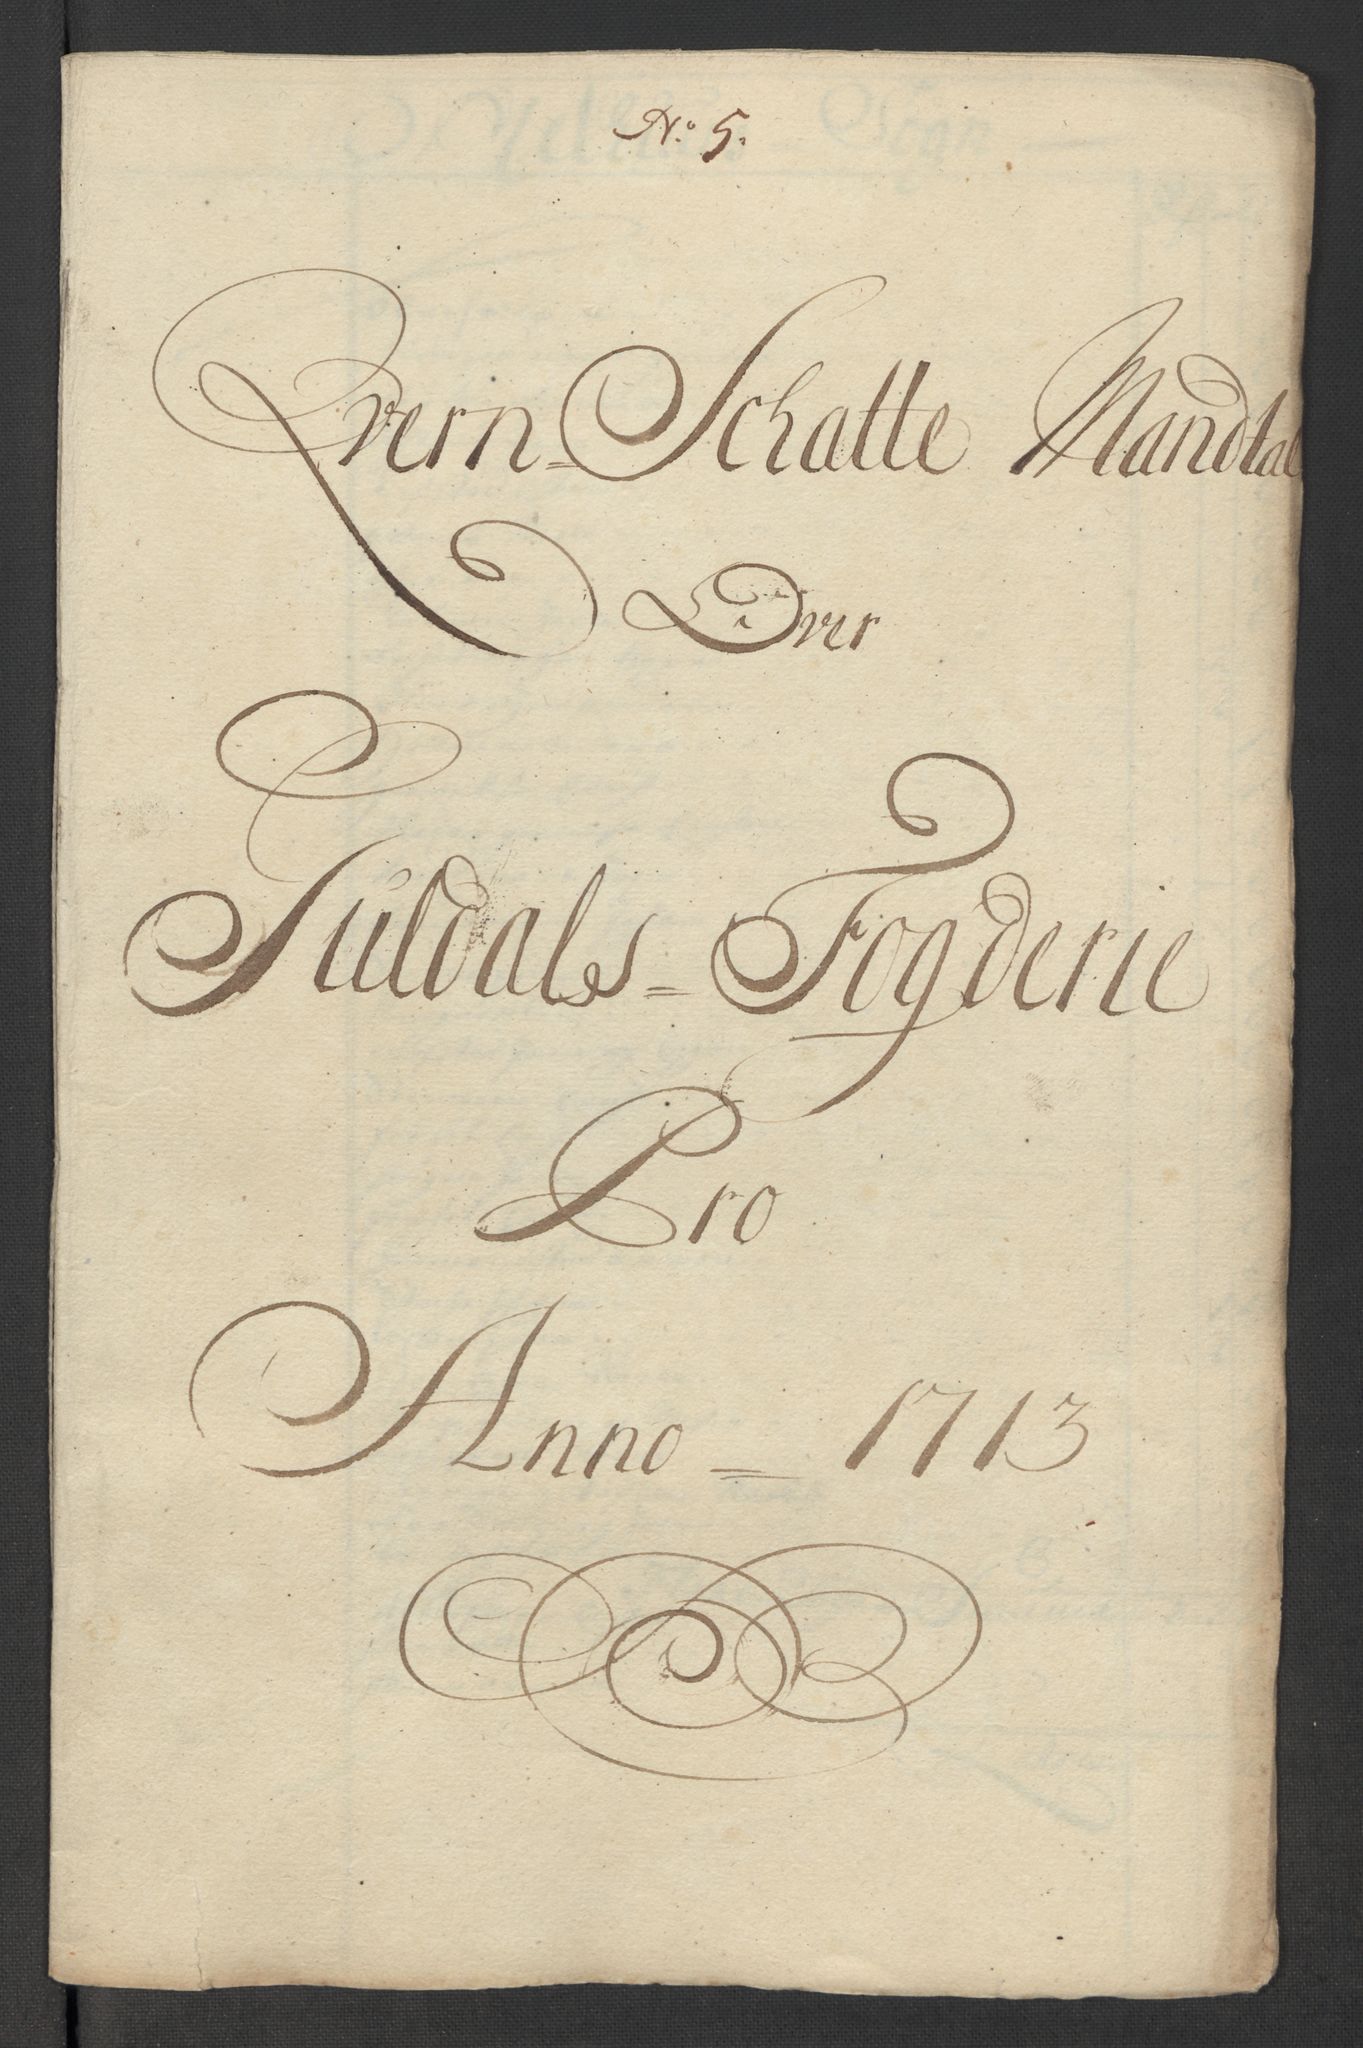 No 5.
Qvern-Schatte Mandtal
Over
Guldals-Fogderie
Pro
Anno - 1713